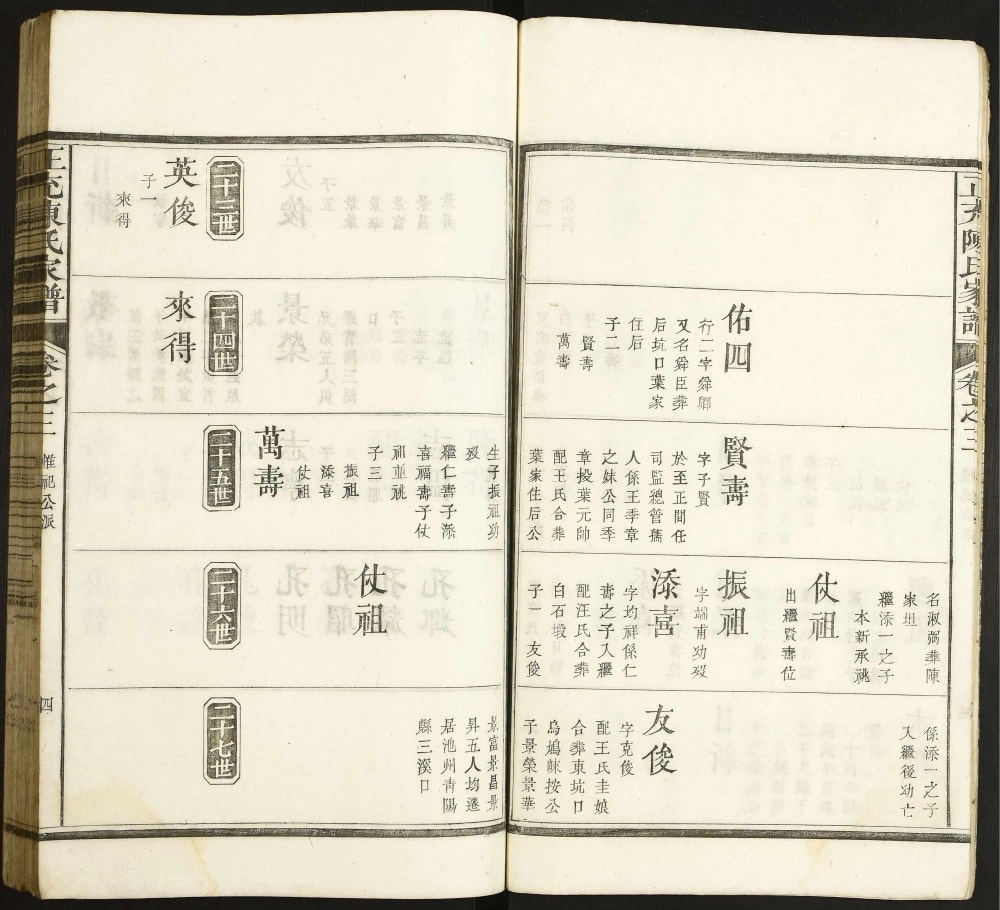 陳氏家譜
卷之三
名淑弼葬陳
家坦
繼添一之子
本新承祧
係添一之子
又繼後幼亡
仗祖
出繼賢壽位
佑四
行二字舜卿
又名舜臣葬
后坑口葉家
住后
子二
賢壽
萬壽
賢壽
字子賢
於至正間任
司監總管孺
人係王季章
之妹公同季
章投葉元帥
配王氏合葬
葉家住后公
振祖
字端甫幼歿
添喜
字均祥係仁
壽之子入繼
配汪氏合葬
白石塅
子一 友俊
友俊
字克俊
配王氏圭娘
合葬東坑口
烏塢觩按公
子景榮景華
生子振祖幼
歿
繼仁壽子添
喜福壽子仗
祖並祧
子三
振祖
添喜
仗祖
景富景昌景
昇五人均遷
居池州青陽
縣三溪口
萬壽
仗祖
二十三世
二十四世
二十五世
二十六世
二十七世
英俊
子一
來得
來得
陳氏家譜
卷之三
惟祀公派
四